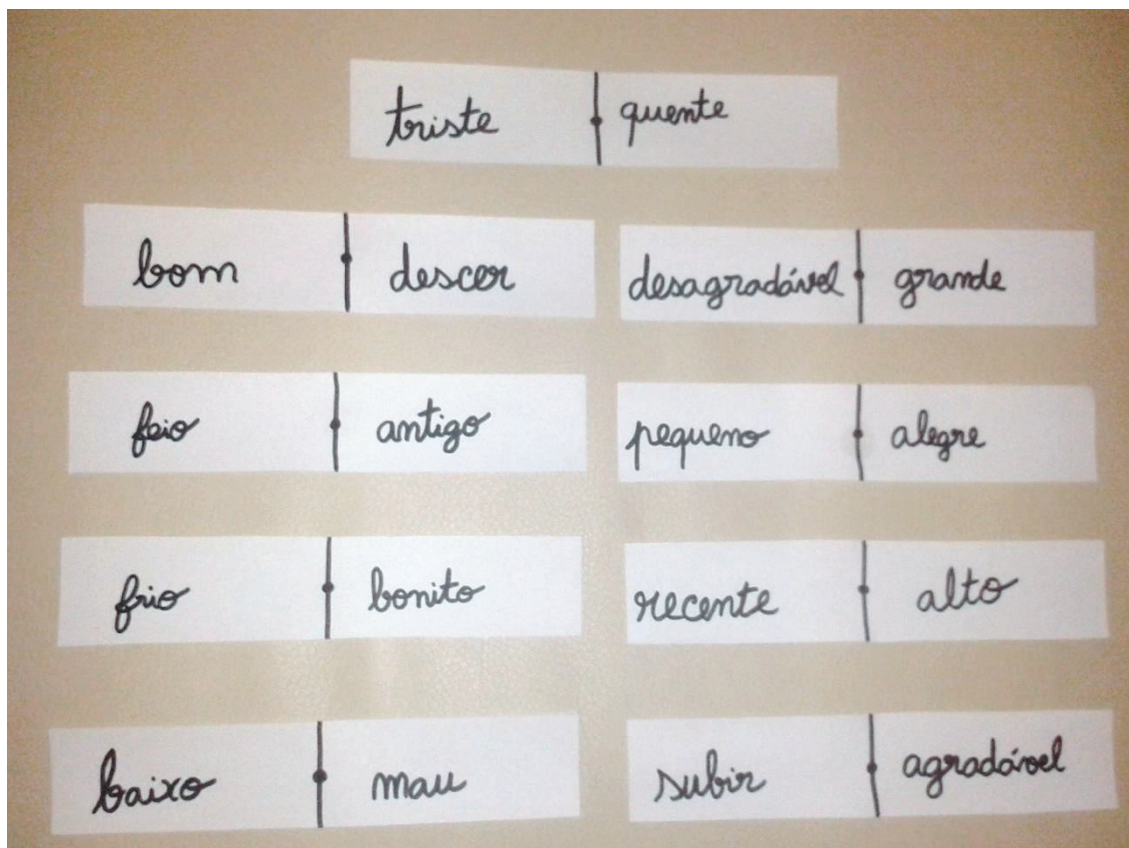 triste quente
bom descer desagradável grande
feio antigo pequeno alegre
frio bonito recente alto
baixo mau subir agradável